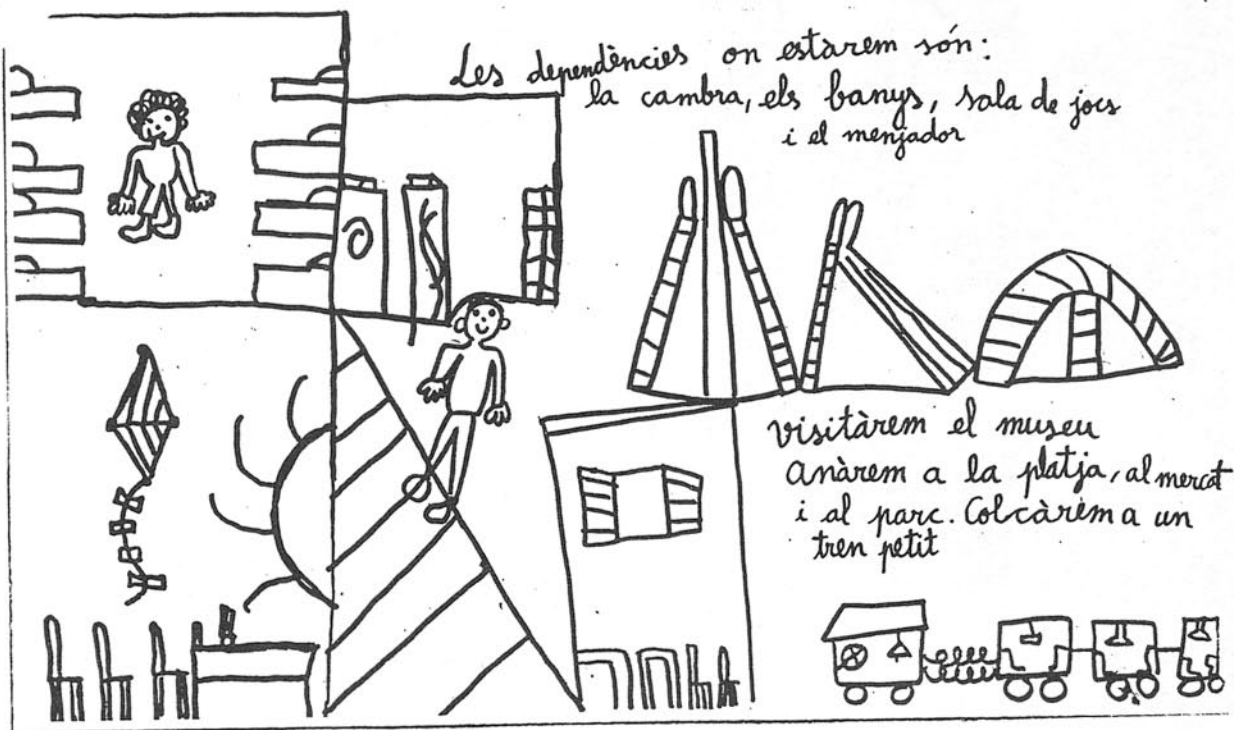 Les dependències on estàrem són:
la cambra, els banys, sala de jocs
i el menjador
visitàrem el museu
Anàrem a la platja, al mercat
i al parc. Colcàrem a un
tren petit